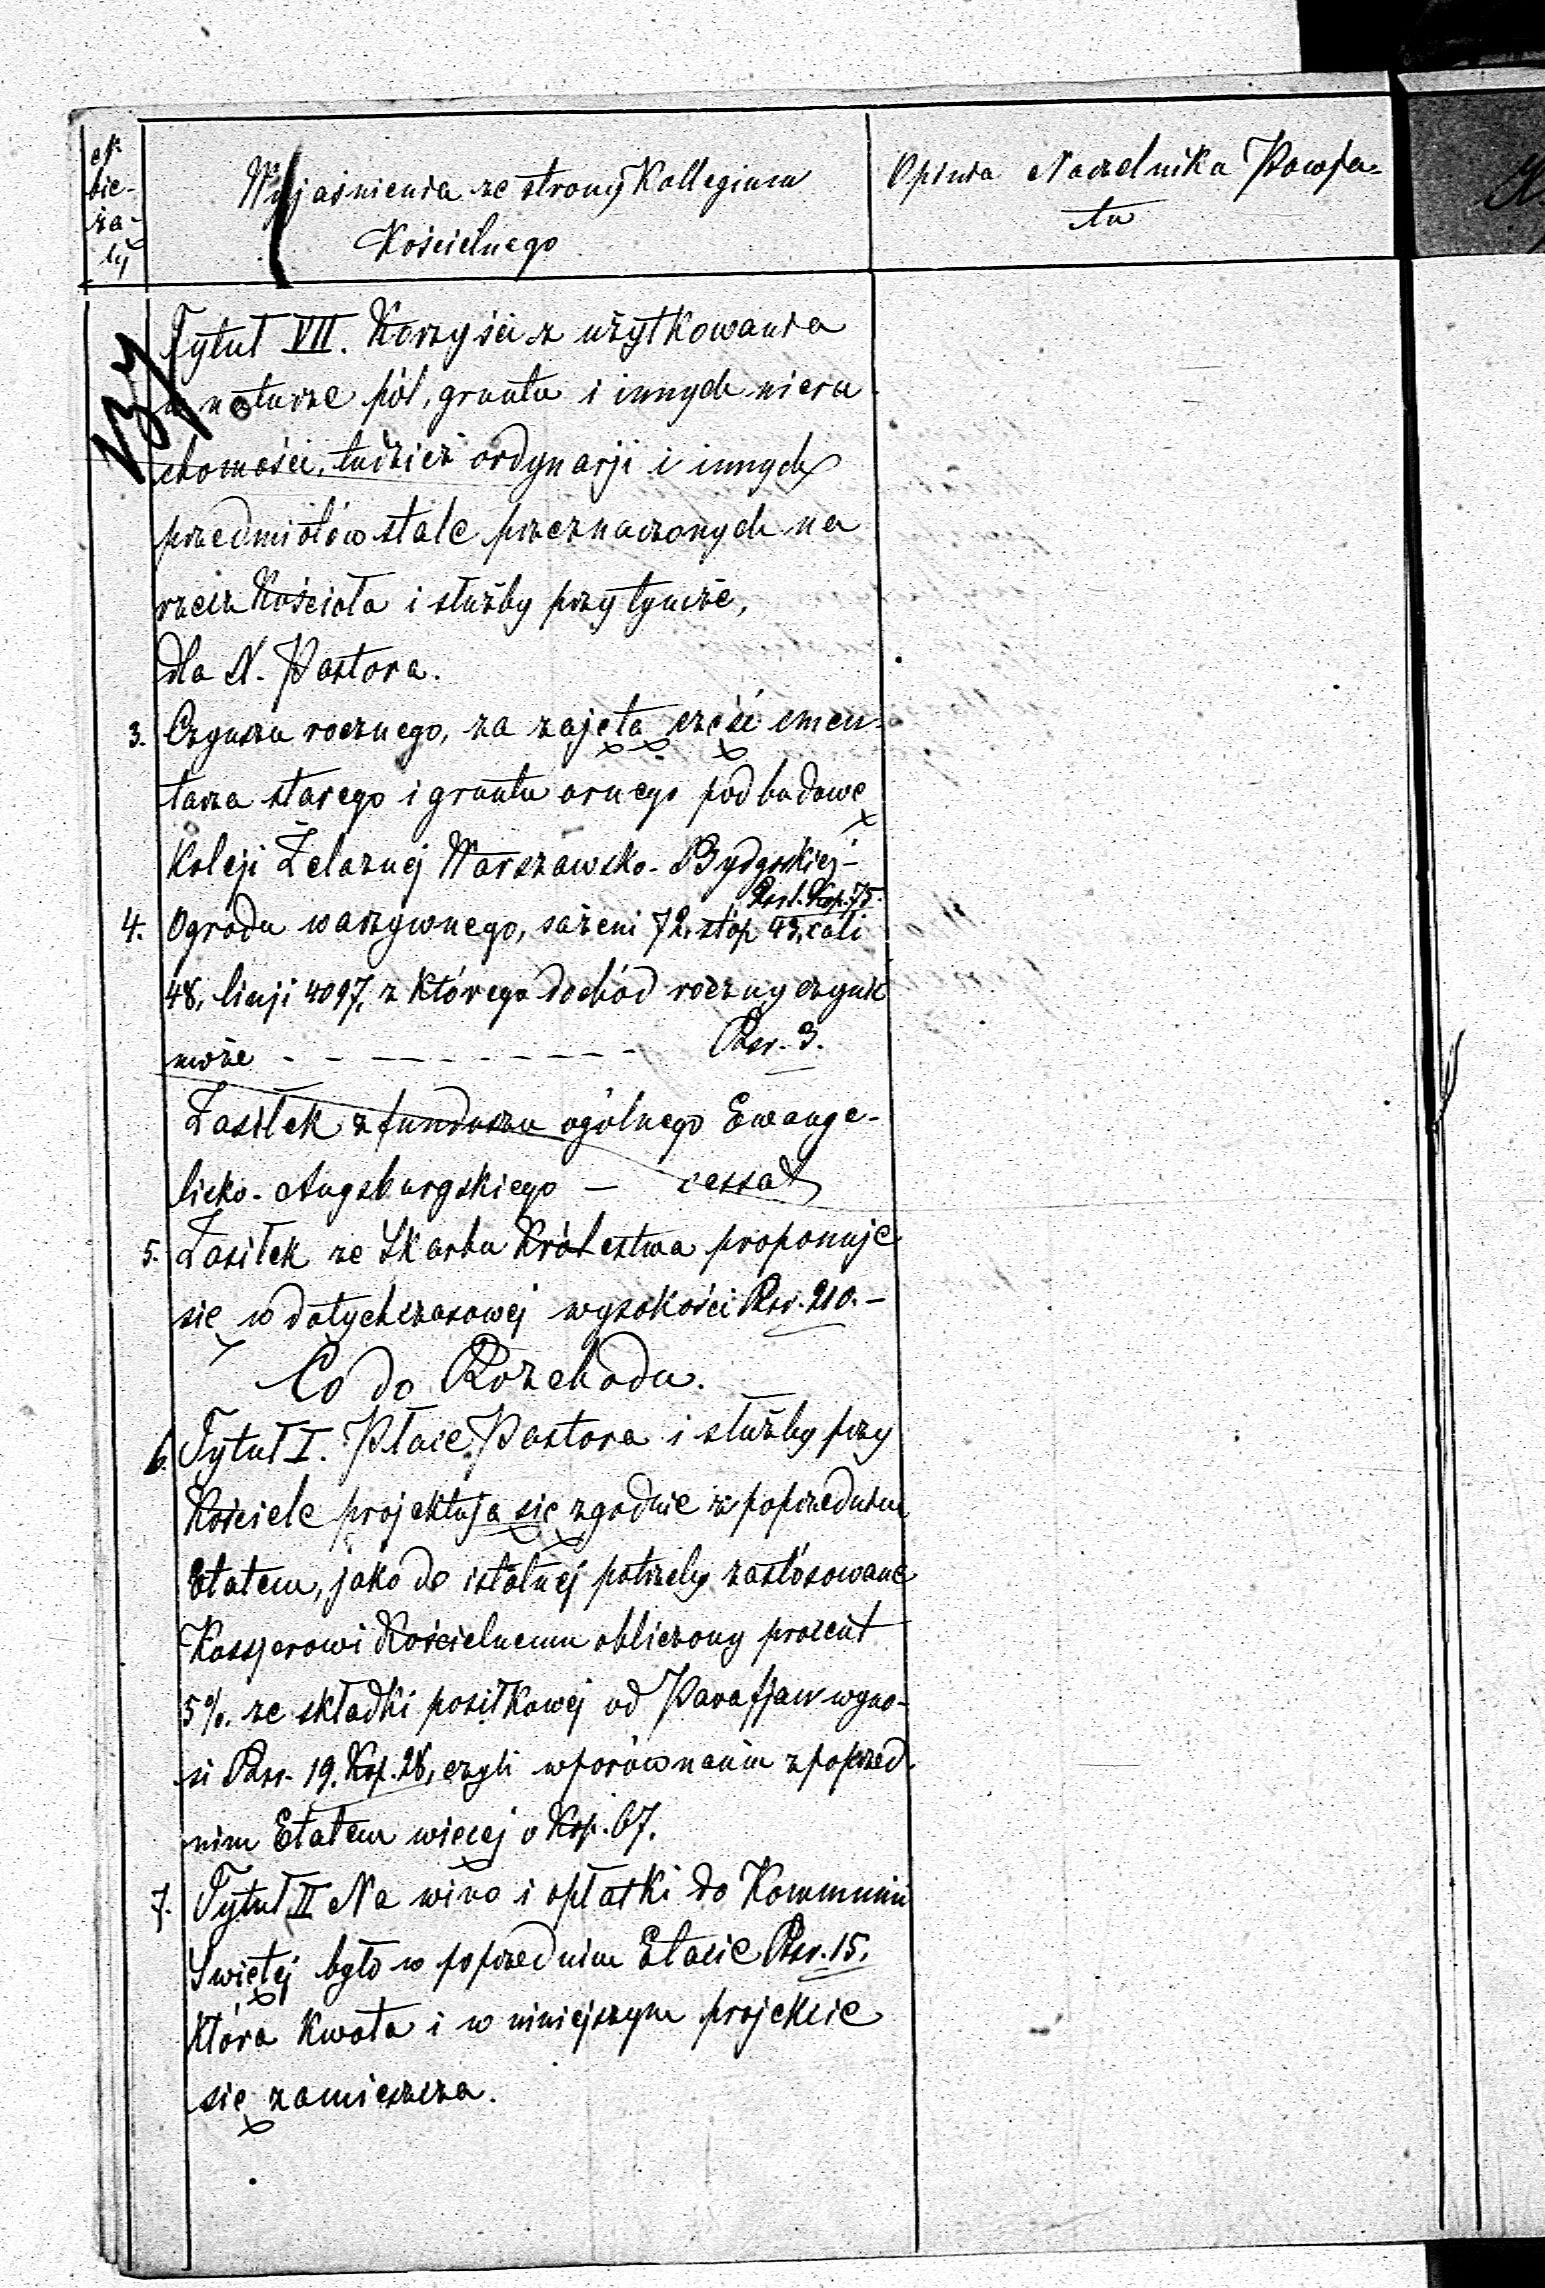 N
bie-
żą-
cy
Wyjaśnienia ze strony Kollegium
Kościelnego
Opinia Naczelnika Powia-
tu
Tytuł VII. Korzyści z użytkowania
w naturze pól, gruntu i innych nieru
chomości, tudzież ordynarji i innych
przedmiotów stale przeznaczonych na
rzecz Kościoła i służby przy tymże,
dla N. Pastora.
3. Czynszu rocznego, za zajętą część cmen-
tarza starego i gruntu ornego pod budowę
Kolei Żelaznej Warszawsko-Bydgoskiej -
Rs 1. Kop. 75.
4. Ogrodu warzywnego, sażeni 72, stóp 43, cali
48, linji 4097, z którego dochód roczny czynić
może - - - - - - - - - - Rsr. 3.
Zasiłek z funduszu ogólnego Ewange-
licko-Augsburgskiego — cessat
5. Zasiłek ze Skarbu Królestwa proponuje
się w dotychczasowej wysokości Rsr. 210. —
Co do Rozchodu.
6. Tytuł I. Płace Pastora i służby przy
Kościele projektują się zgodnie z poprzednim
Etatem, jako do istotnej potrzeby zastósowane
Kassjerowi Kościelnemu obliczony procent
5%. ze składki posiłkowej od Parafjan wyno-
si Rsr. 19. Kop. 28, czyli w porównaniu z poprzed-
nim Etatem więcej o Kop. 67.
7. Tytuł II Na wino i opłatki do Kommunii
Swiętej było w poprzednim Etacie Rsr. 15.
która kwota i w niniejszym projekcie
się zamieszcza.